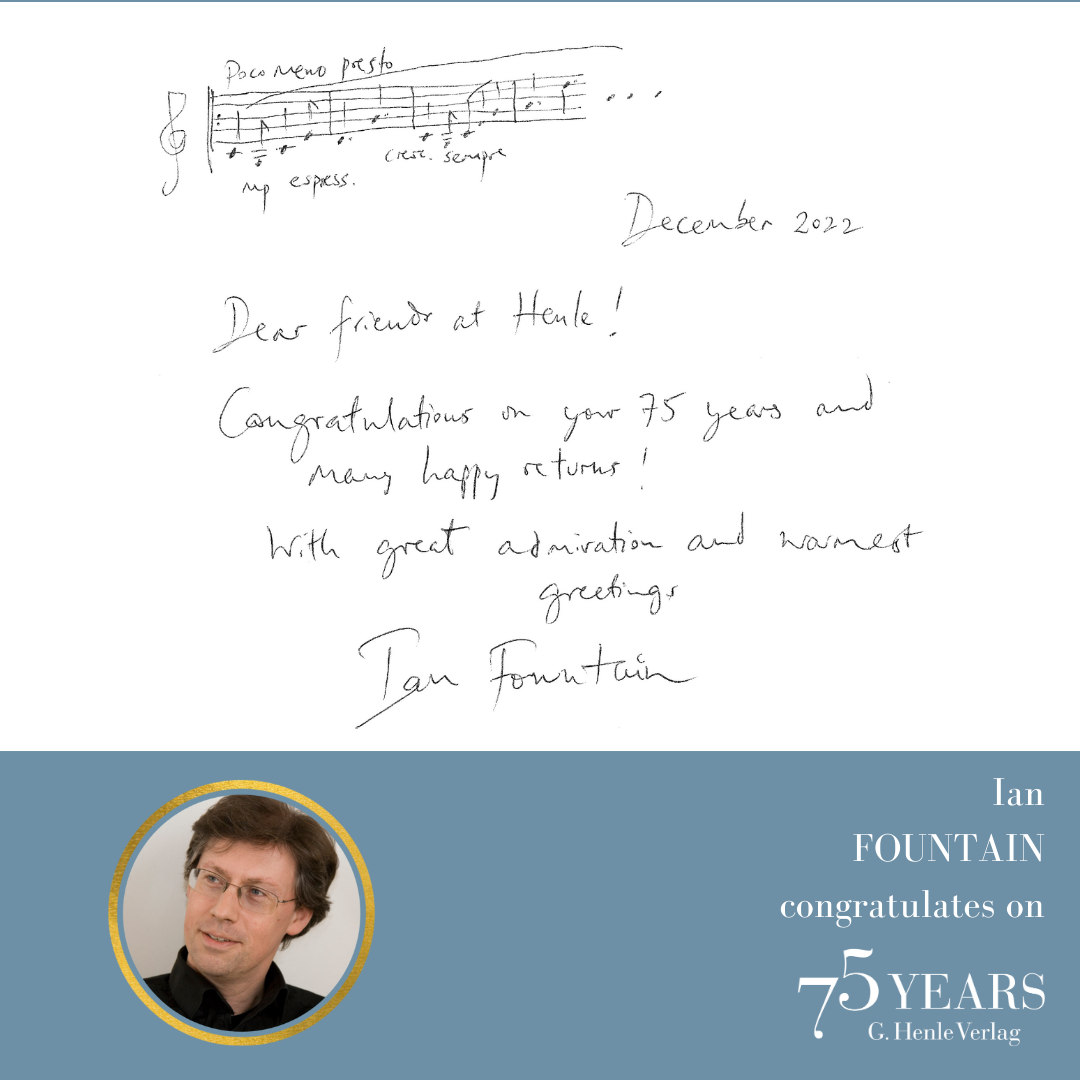 Poco meno presto
mp espress.
cresc. sempre
December 2022
Dear friends at Henle!
Congratulations on your 75 years and
many happy returns!
With great admiration and warmest
greetings
Ian Fountain
Ian
FOUNTAIN
congratulates on
75 YEARS
G. Henle Verlag